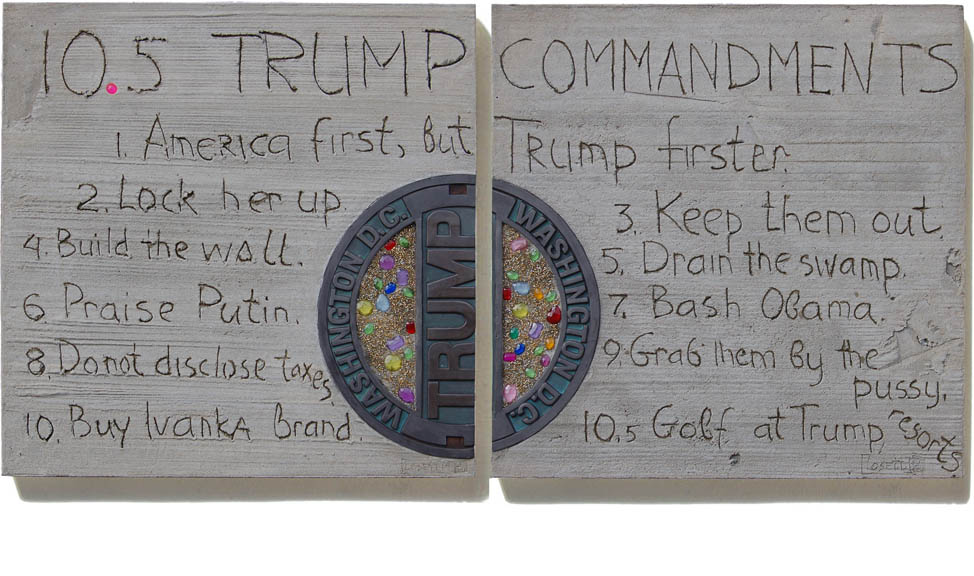 10.5 TRUMP COMMANDMENTS
1. America first, but Trump firster.
2. Lock her up.
3. Keep them out.
4. Build the wall.
5. Drain the swamp.
6. Praise Putin.
7. Bash Obama.
8. Do not disclose taxes.
9. Grab them by the
pussy.
10. Buy Ivanka brand.
10.5 Golf at Trump resorts
WASHINGTON D.C.
TRUMP
WASHINGTON D.C.